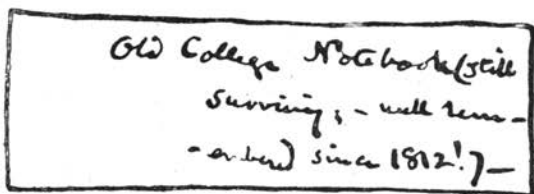 Old College Notebook (still
surviving, - well rem-
-embered since 1812!) —